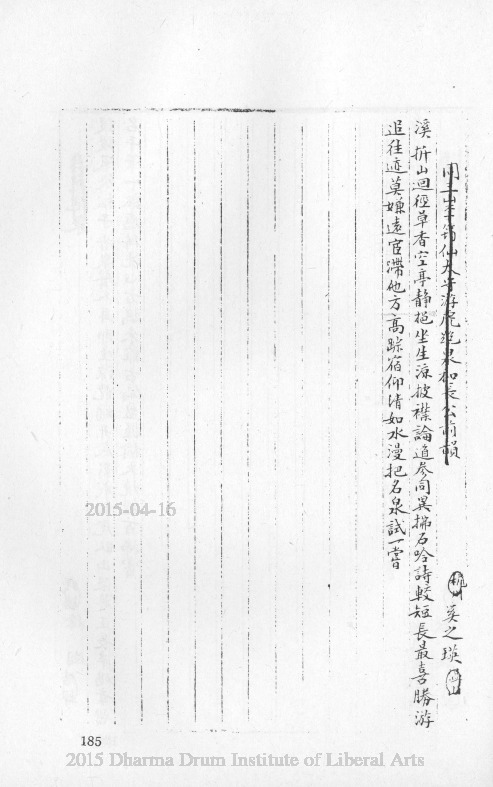 游虎跑泉和長公前韻
吳之瑛
溪折山迴徑草香空亭靜挹坐生涼披襟論道參同異掃石吟詩較短長最喜勝游
追往迹莫嫌遠宦滯他方高踪宿仰清如水漫把名泉試一嘗
2015-04-16
185
2015 Dharma Drum Institute of Liberal Arts